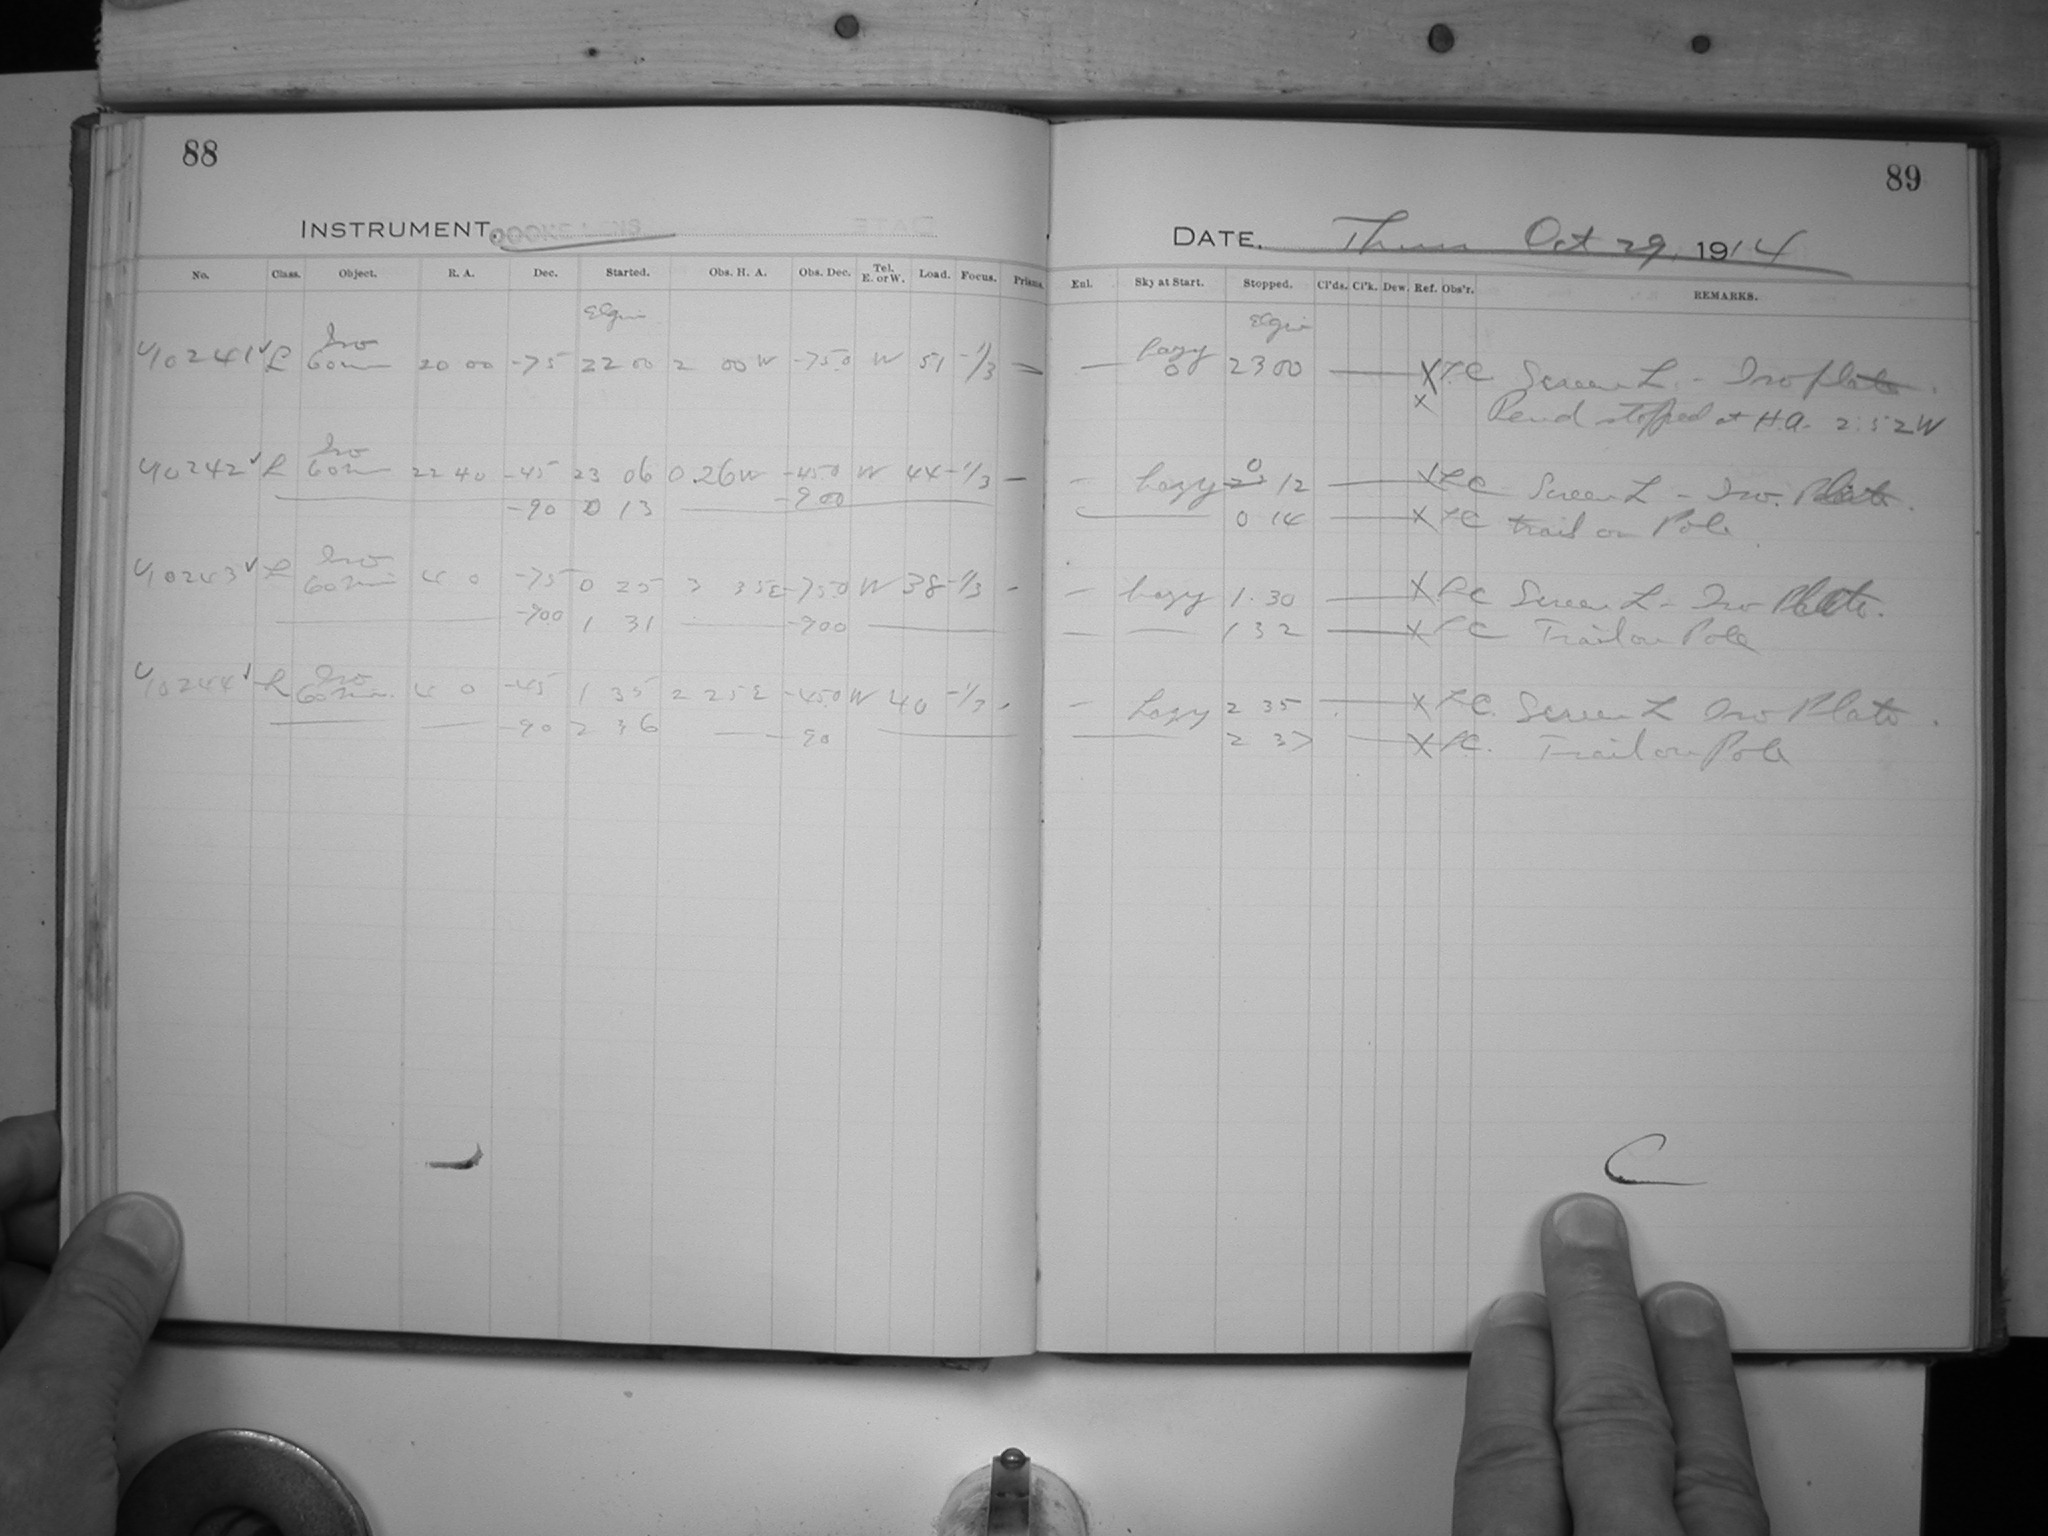 88
INSTRUMENT.
No. Class. Object. R. A. Dec. Started. Obs. H. A. Obs. Dec. Tel. E. or W. Load. Focus. Prisms.
Elgin
10241 L Iso 60 min 20 00 -75 22 00 2 00 W -75.0 W 51 -1/3 —
10242 L Iso 60 min 22 40 -45 23 06 0.26 W -45.0 W 44 -1/3 —
-90 0 13 -90.0
10243 L Iso 60 min 4 0 -75 0 25 3 35 E -75.0 W 38 -1/3 -
-90.0 1 31 -90.0
10244 L Iso 60 min. 4 0 -45 1 35 2 25 E -45.0 W 40 -1/3
-90 2 36 -90
89
DATE. Thurs Oct 29, 1914
Enl. Sky at Start. Stopped. Cl'ds. Cl'k. Dew. Ref. Obs'r. REMARKS.
Elgin
— hazy 23 00 X Screen L. - Iso plate.
X Pend stopped at H.A. 2:52 W
- hazy 0 12 X Screen L - Iso. Plate.
0 14 X trail on Pole
- hazy 1.30 X Screen L - Iso Plate.
— 1 32 X Trail on Pole
- hazy 2 35 X Screen L Iso Plate.
2 37 X Trail on Pole